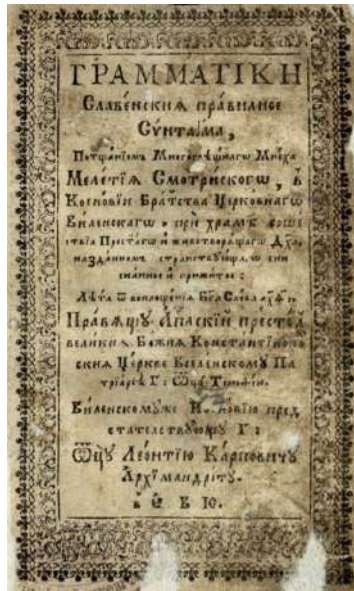 ГРАММА́ТІКИ
Славе́нския пра́вилное
Сѵ́нтаґма,
Потща́ніемъ Многогрѣ́шнагѡ Мни́ха
Меле́тїѧ Смотри́скогѡ, в̾
Кѡено́вїи Бра́тства Церко́внагѡ
Ви́ленскагѡ при храмѣ соше
ствїѧ Прест҃агѡ и животворѧ́щагѡ Дх҃а,
назда́нномъ
сни́сканное и прижи́тое:
Лѣ́та ѿ воплоще́нїѧ Бг҃а Сло́ва
Пра́вѧщу Апⷭ҇лскїй престо́лъ
вели́кїѧ Бо́жїѧ Константїнопо
скїѧ Це́ркве Вселе́нскому Па
трїа́рсѣ Г: Ѿцу̀ Тимоѳе́ю.
Ви́ленскомуже пред
ста́телствующу Г:
Ѿцу̀ Лео́нтїю Ка́рповичу
А̓рхїмандрі́ту.